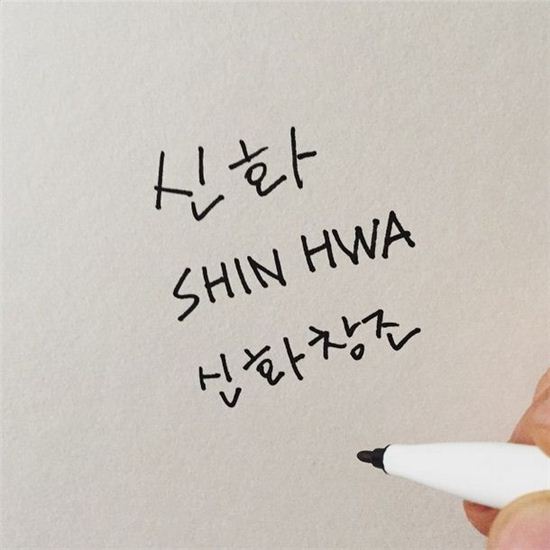 신화
SHIN HWA
신화창조